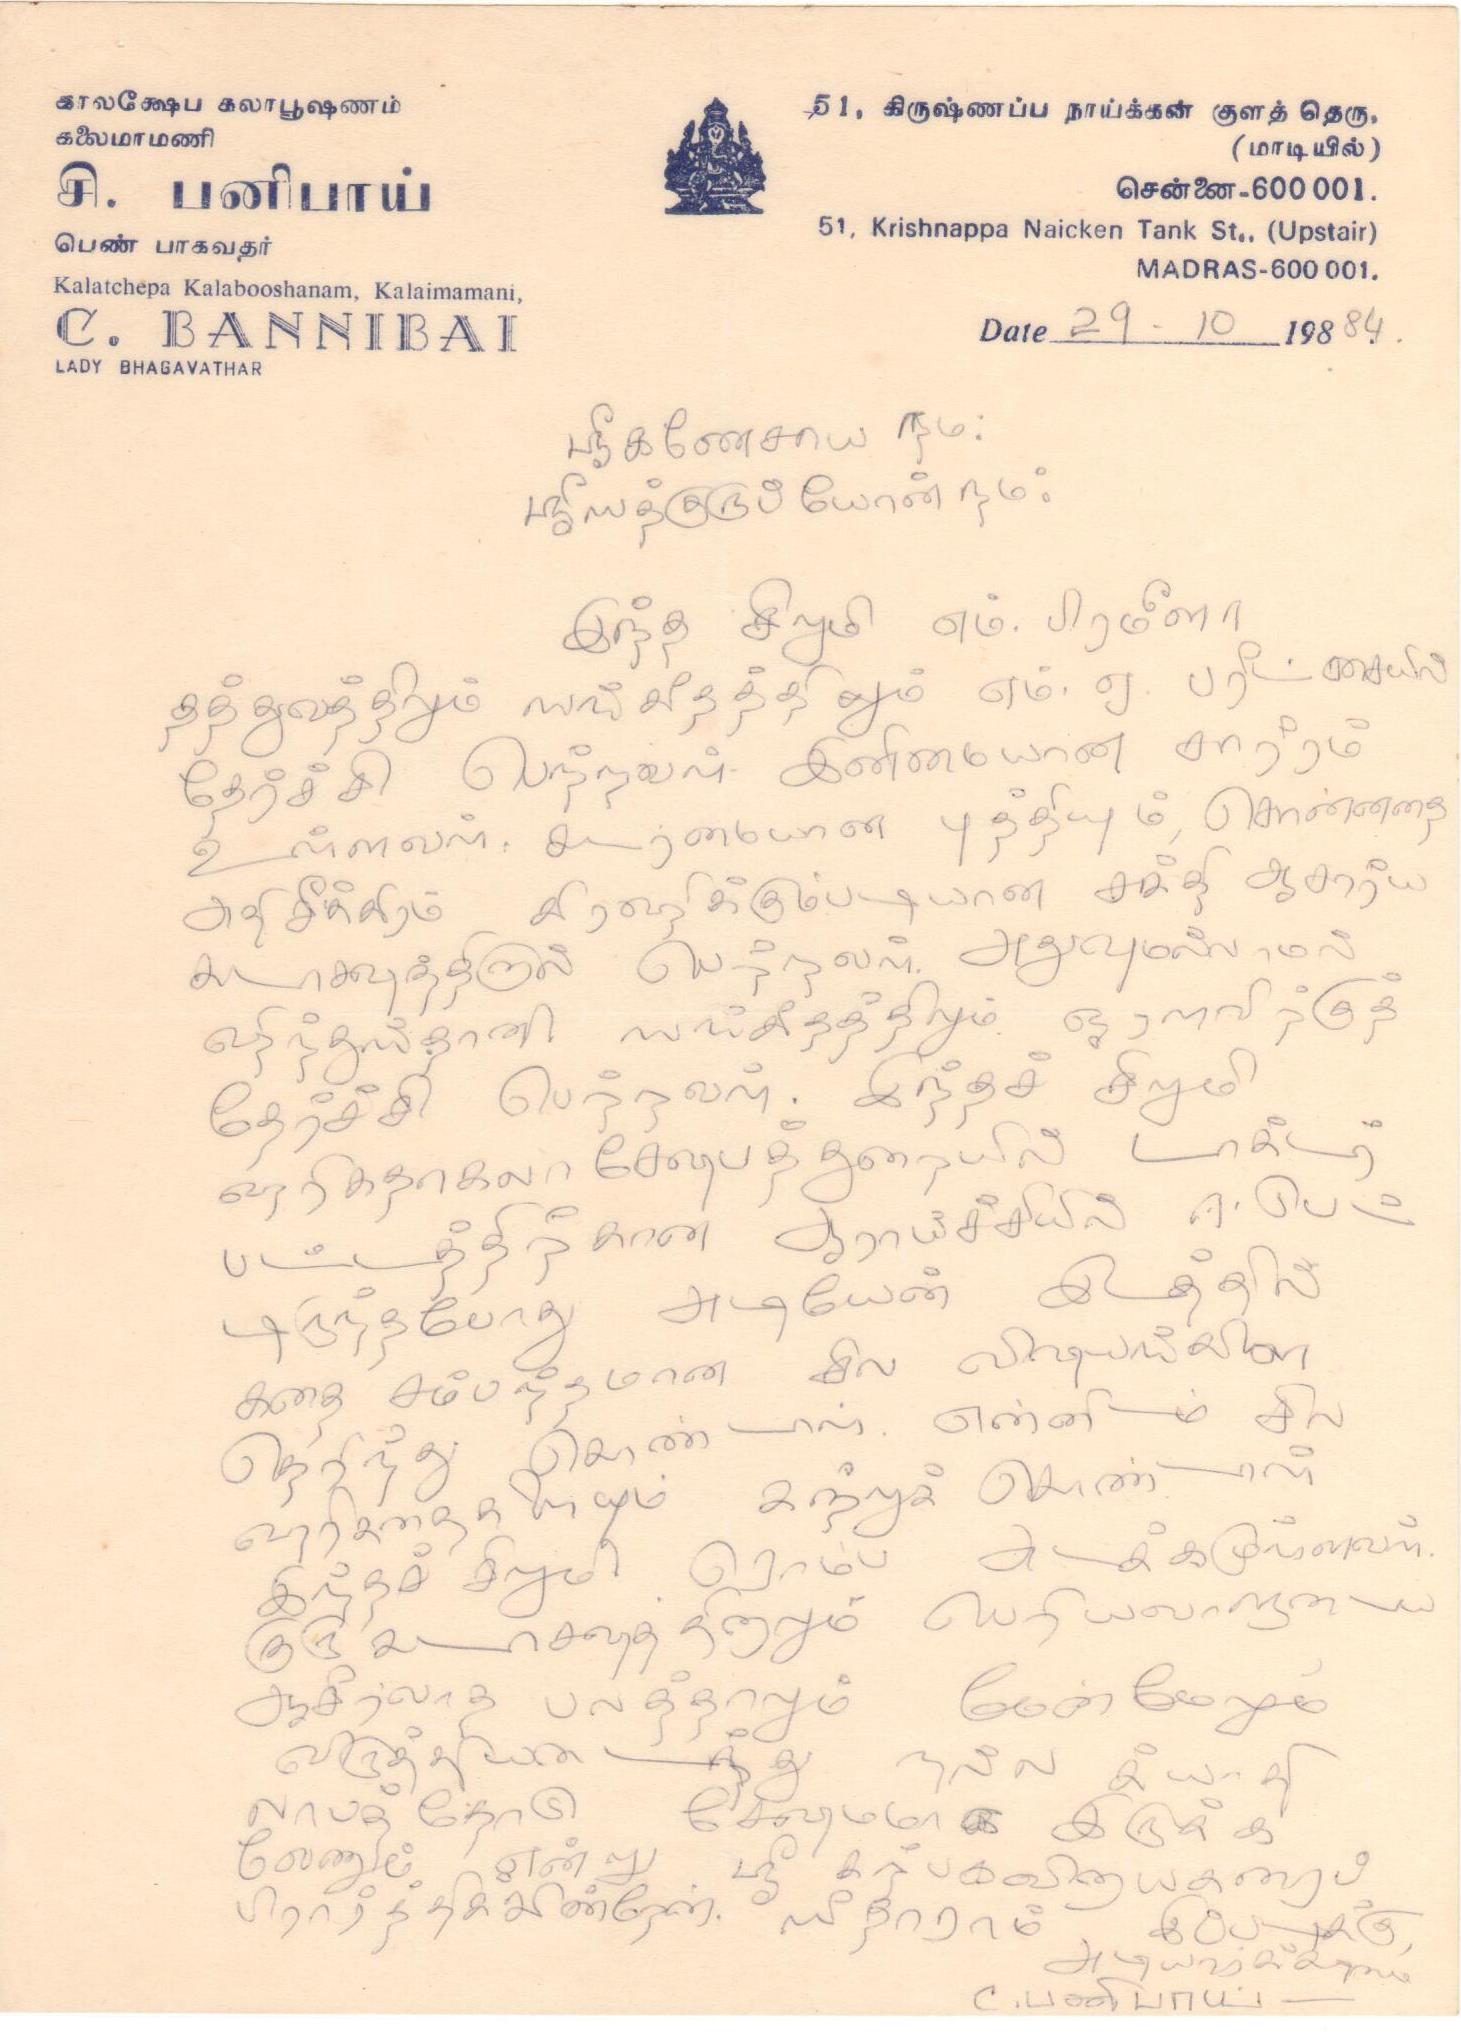 காலக்ஷேப கலாபூஷணம்
கலைமாமணி
சி. பனிபாய்
பெண் பாகவதர்
Kalatchepa Kalabooshanam, Kalaimamani,
C. BANNIBAI
LADY BHAGAVATHAR
51, கிருஷ்ணப்ப நாய்க்கன் குளத் தெரு,
(மாடியில்)
சென்னை-600 001.
51, Krishnappa Naicken Tank St., (Upstair)
MADRAS-600 001.
Date 29-10 198 84.
ஸ்ரீகணேசாய நம:
ஸ்ரீஸத்குருப்யோன் நம:
இந்த சிறுமி எம். பிரமீளா
தத்துவத்திலும் ஸங்கீதத்திலும் எம். ஏ. பரீட்சையில்
தேர்ச்சி பெற்றவள். இனிமையான சாரீரம்
உள்ளவள். கூர்மையான புத்தியும், சொன்னதை
அதிசீக்கிரம் கிரஹிக்கும்படியான சக்தி ஆசார்ய
கடாக்ஷத்தினால் பெற்றவள். அதுவுமல்லாமல்
ஹிந்துஸ்தானி ஸங்கீதத்திலும் ஓரளவிற்குத்
தேர்ச்சி பெற்றவள். இந்தச் சிறுமி
ஹரிகதாகலாக்ஷேபத்துறையில் டாக்டர்
பட்டத்திற்கான ஆராய்ச்சியில் ஈடுபட்
டிருந்தபோது அடியேன் இடத்தில்
கதை சம்பந்தமான சில விஷயங்களை
தெரிந்து கொண்டாள். என்னிடம் சில
ஹரிகதைகளையும் கற்றுக் கொண்டாள்
இந்தச் சிறுமி ரொம்ப அடக்கமுள்ளவள்.
குரு கடாக்ஷத்தினாலும் பெரியவாளுடைய
ஆசீர்வாத பலத்தாலும் மேன்மேலும்
விருத்தியடைந்து நல்ல க்யாதி
லாபத்தோடு க்ஷேமமாக இருக்க
வேணும் என்று ஸ்ரீ கற்பகவிநாயகரைப்
பிரார்த்திக்கின்றேன். ஸீதாராம் இப்படிக்கு,
C. பனிபாய்